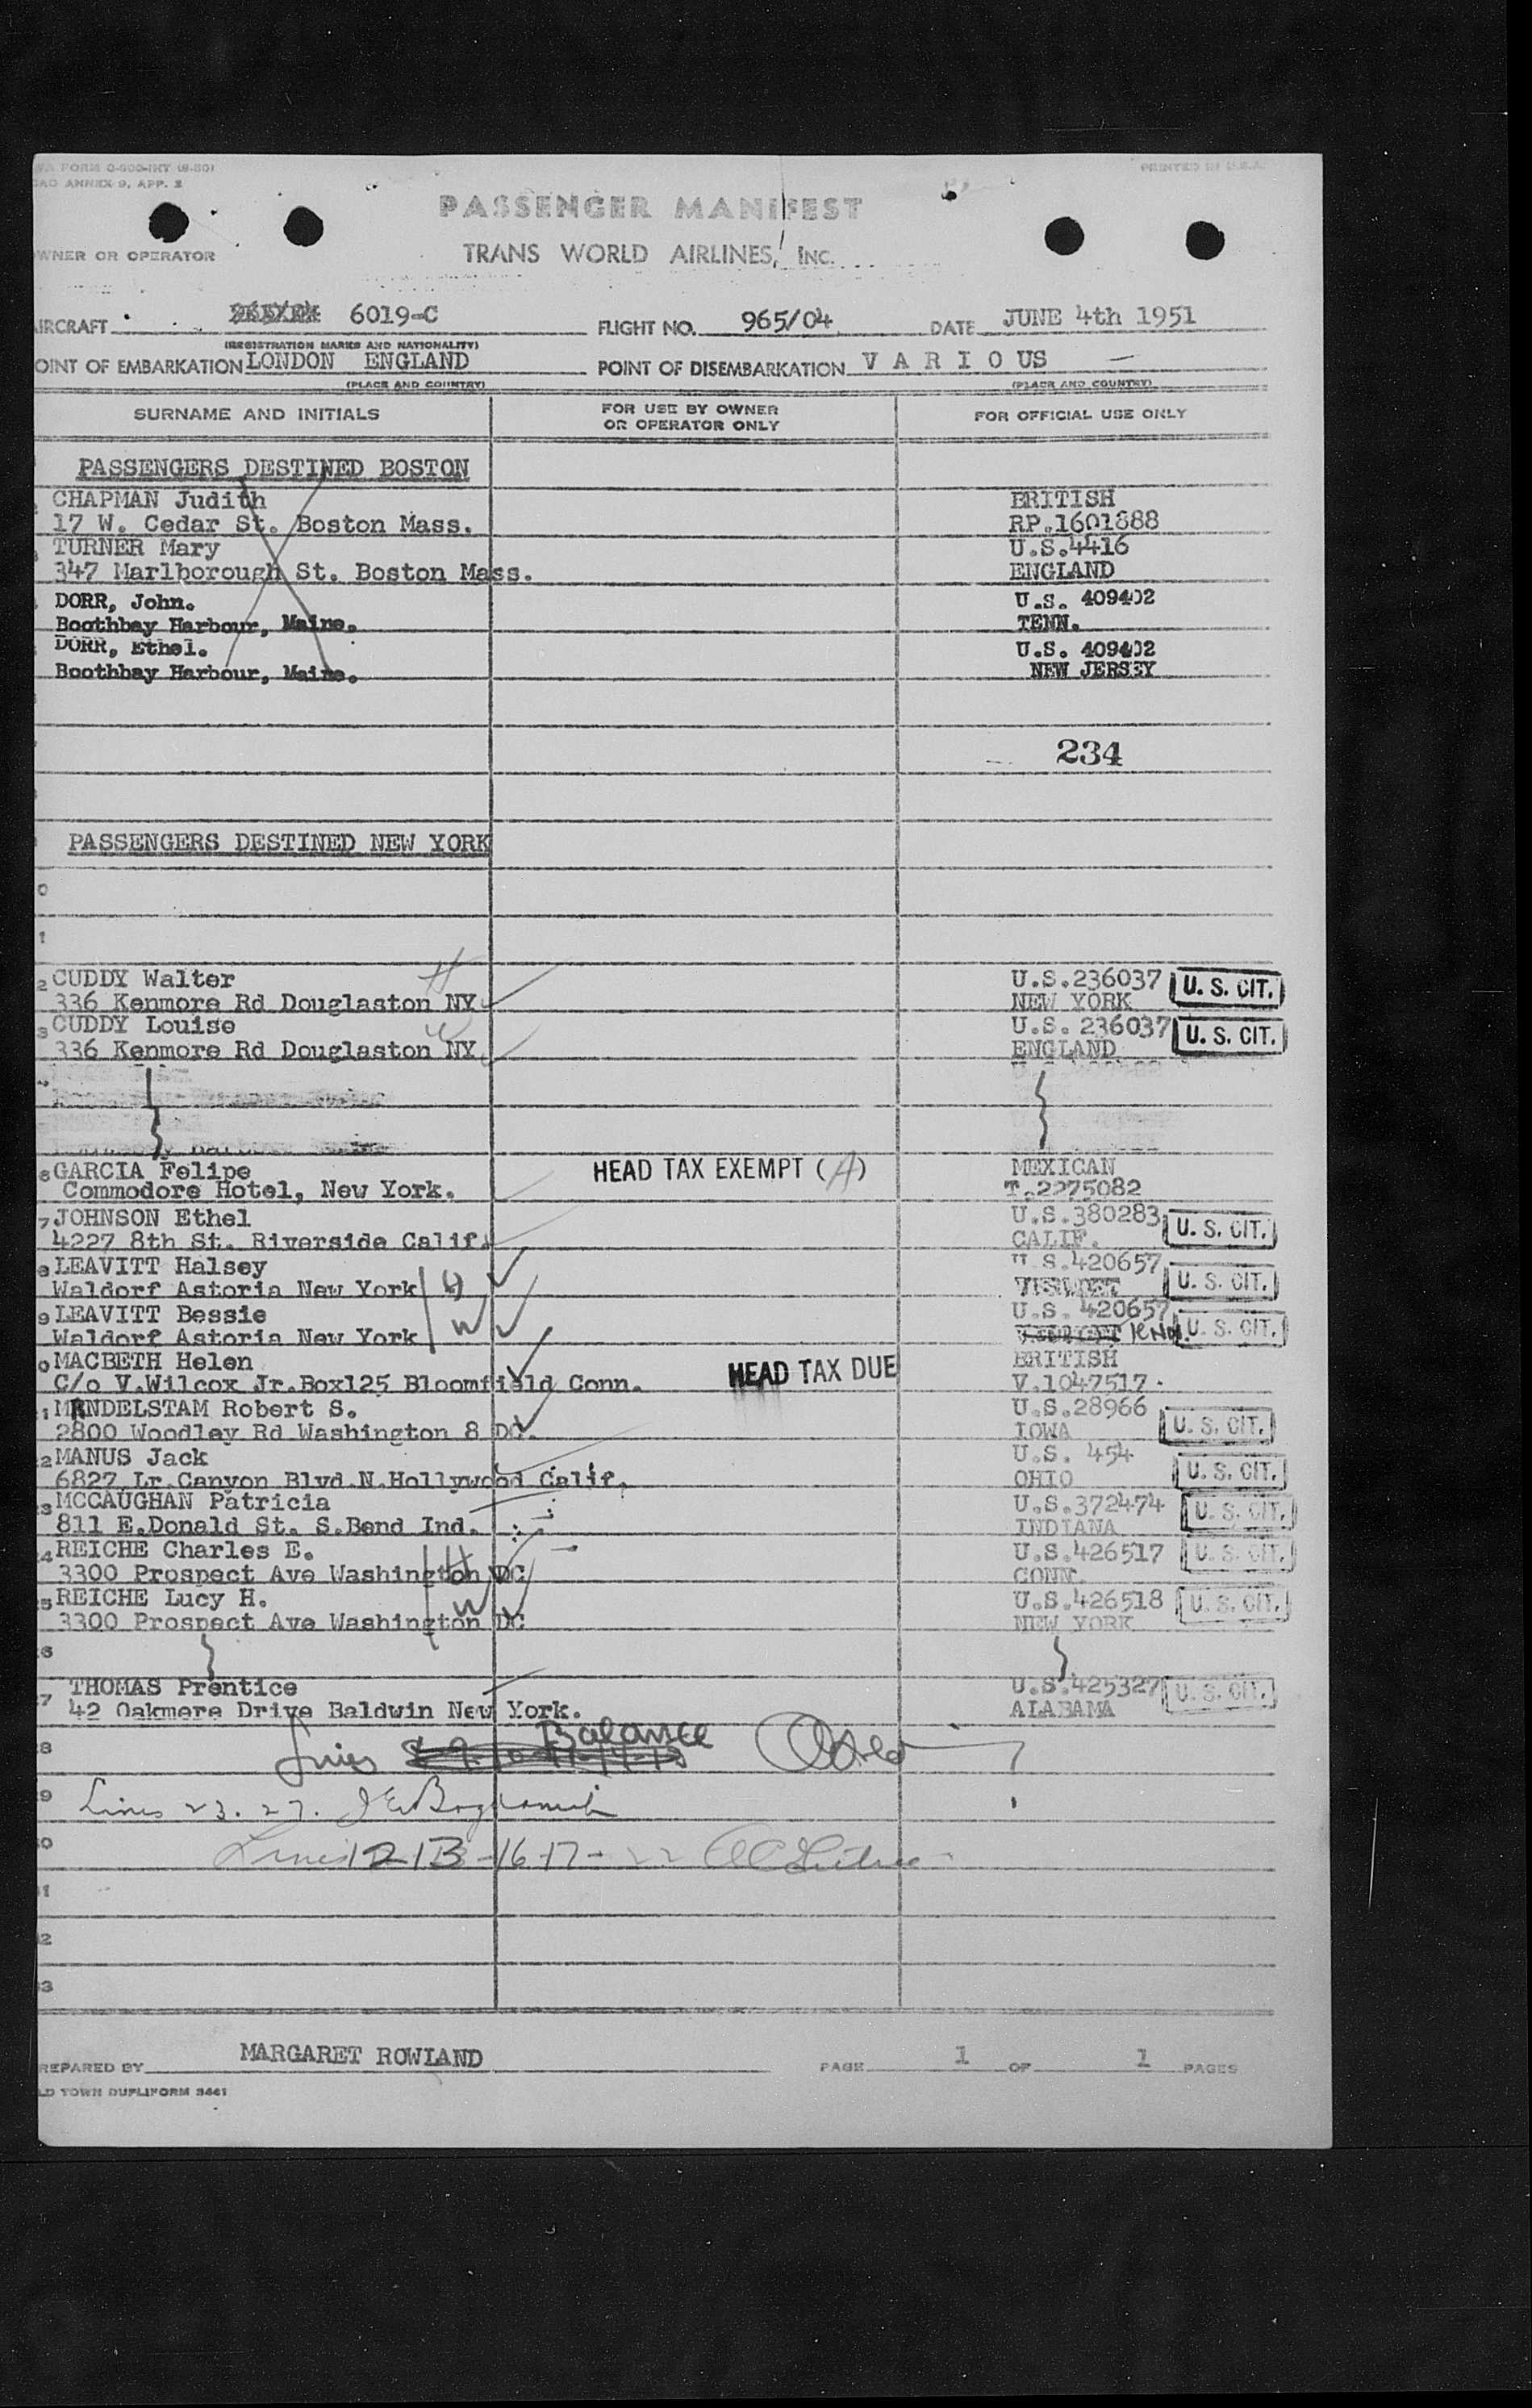 WA FORM O-900-INT (8-50)
CAO ANNEX 9, APP. 2
PRINTED IN U.S.A.
PASSENGER MANIFEST
WNER OR OPERATOR
TRANS WORLD AIRLINES, INC.
IRCRAFT 6019-C FLIGHT NO. 965/04 DATE JUNE 4th 1951
(REGISTRATION MARKS AND NATIONALITY)
OINT OF EMBARKATION LONDON ENGLAND POINT OF DISEMBARKATION V A R I O US
(PLACE AND COUNTRY) (PLACE AND COUNTRY)
SURNAME AND INITIALS FOR USE BY OWNER OR OPERATOR ONLY FOR OFFICIAL USE ONLY
PASSENGERS DESTINED BOSTON
CHAPMAN Judith BRITISH
17 W. Cedar St. Boston Mass. RP.1601888
TURNER Mary U.S.4416
347 Marlborough St. Boston Mass. ENGLAND
DORR, John. U.S. 409402
Boothbay Harbour, Maine. TENN.
DORR, Ethel. U.S. 409402
Boothbay Harbour, Maine. NEW JERSEY
234
PASSENGERS DESTINED NEW YORK
0
1
2 CUDDY Walter H U.S.236037 U. S. CIT.
336 Kenmore Rd Douglaston NY NEW YORK
3 CUDDY Louise W U.S. 236037 U. S. CIT.
336 Kenmore Rd Douglaston NY ENGLAND
6 GARCIA Felipe HEAD TAX EXEMPT (A) MEXICAN
Commodore Hotel, New York. T.2275082
7 JOHNSON Ethel U.S.380283 U. S. CIT.
4227 8th St. Riverside Calif. CALIF.
8 LEAVITT Halsey U.S.420657 U. S. CIT.
Waldorf Astoria New York H
9 LEAVITT Bessie U.S. 420657 U. S. CIT.
Waldorf Astoria New York W
0 MACBETH Helen HEAD TAX DUE BRITISH
C/o V.Wilcox Jr.Box125 Bloomfield Conn. V.1047517
1 MANDELSTAM Robert S. U.S.28966 U. S. CIT.
2800 Woodley Rd Washington 8 DC. IOWA
2 MANUS Jack U.S. 454 U. S. CIT.
6827 Lr.Canyon Blvd.N.Hollywood Calif. OHIO
3 MCCAUGHAN Patricia U.S.372474 U. S. CIT.
811 E.Donald St. S.Bend Ind. INDIANA
24 REICHE Charles E. H U.S.426517 U. S. CIT.
3300 Prospect Ave Washington DC CONN.
5 REICHE Lucy H. W U.S.426518 U. S. CIT.
3300 Prospect Ave Washington DC NEW YORK
6
7 THOMAS Prentice U.S.425327 U. S. CIT.
42 Oakmere Drive Baldwin New York. ALABAMA
8 Lines Balance
9 Lines 23. 27.
0 Lines 12 13 - 16 17 - 22
1
2
3
REPARED BY MARGARET ROWLAND PAGE 1 OF 1 PAGES
LD TOWN DUPLIFORM 3441